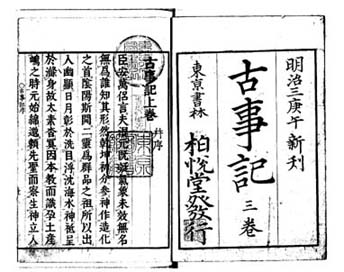 明治三庚午新刊
古事記 三卷
東京書林 柏悦堂發行
古事記上卷 并序
臣安萬侶言夫混元既凝氣象未效無名
無爲誰知其形然乾坤初分參神作造化
之首陰陽斯開二靈爲群品之祖所以出
入幽顯日月彰於洗目浮沈海水神祇呈
於滌身故太素杳冥因本教而識孕土產
嶋之時元始綿邈頼先聖而察生神立人